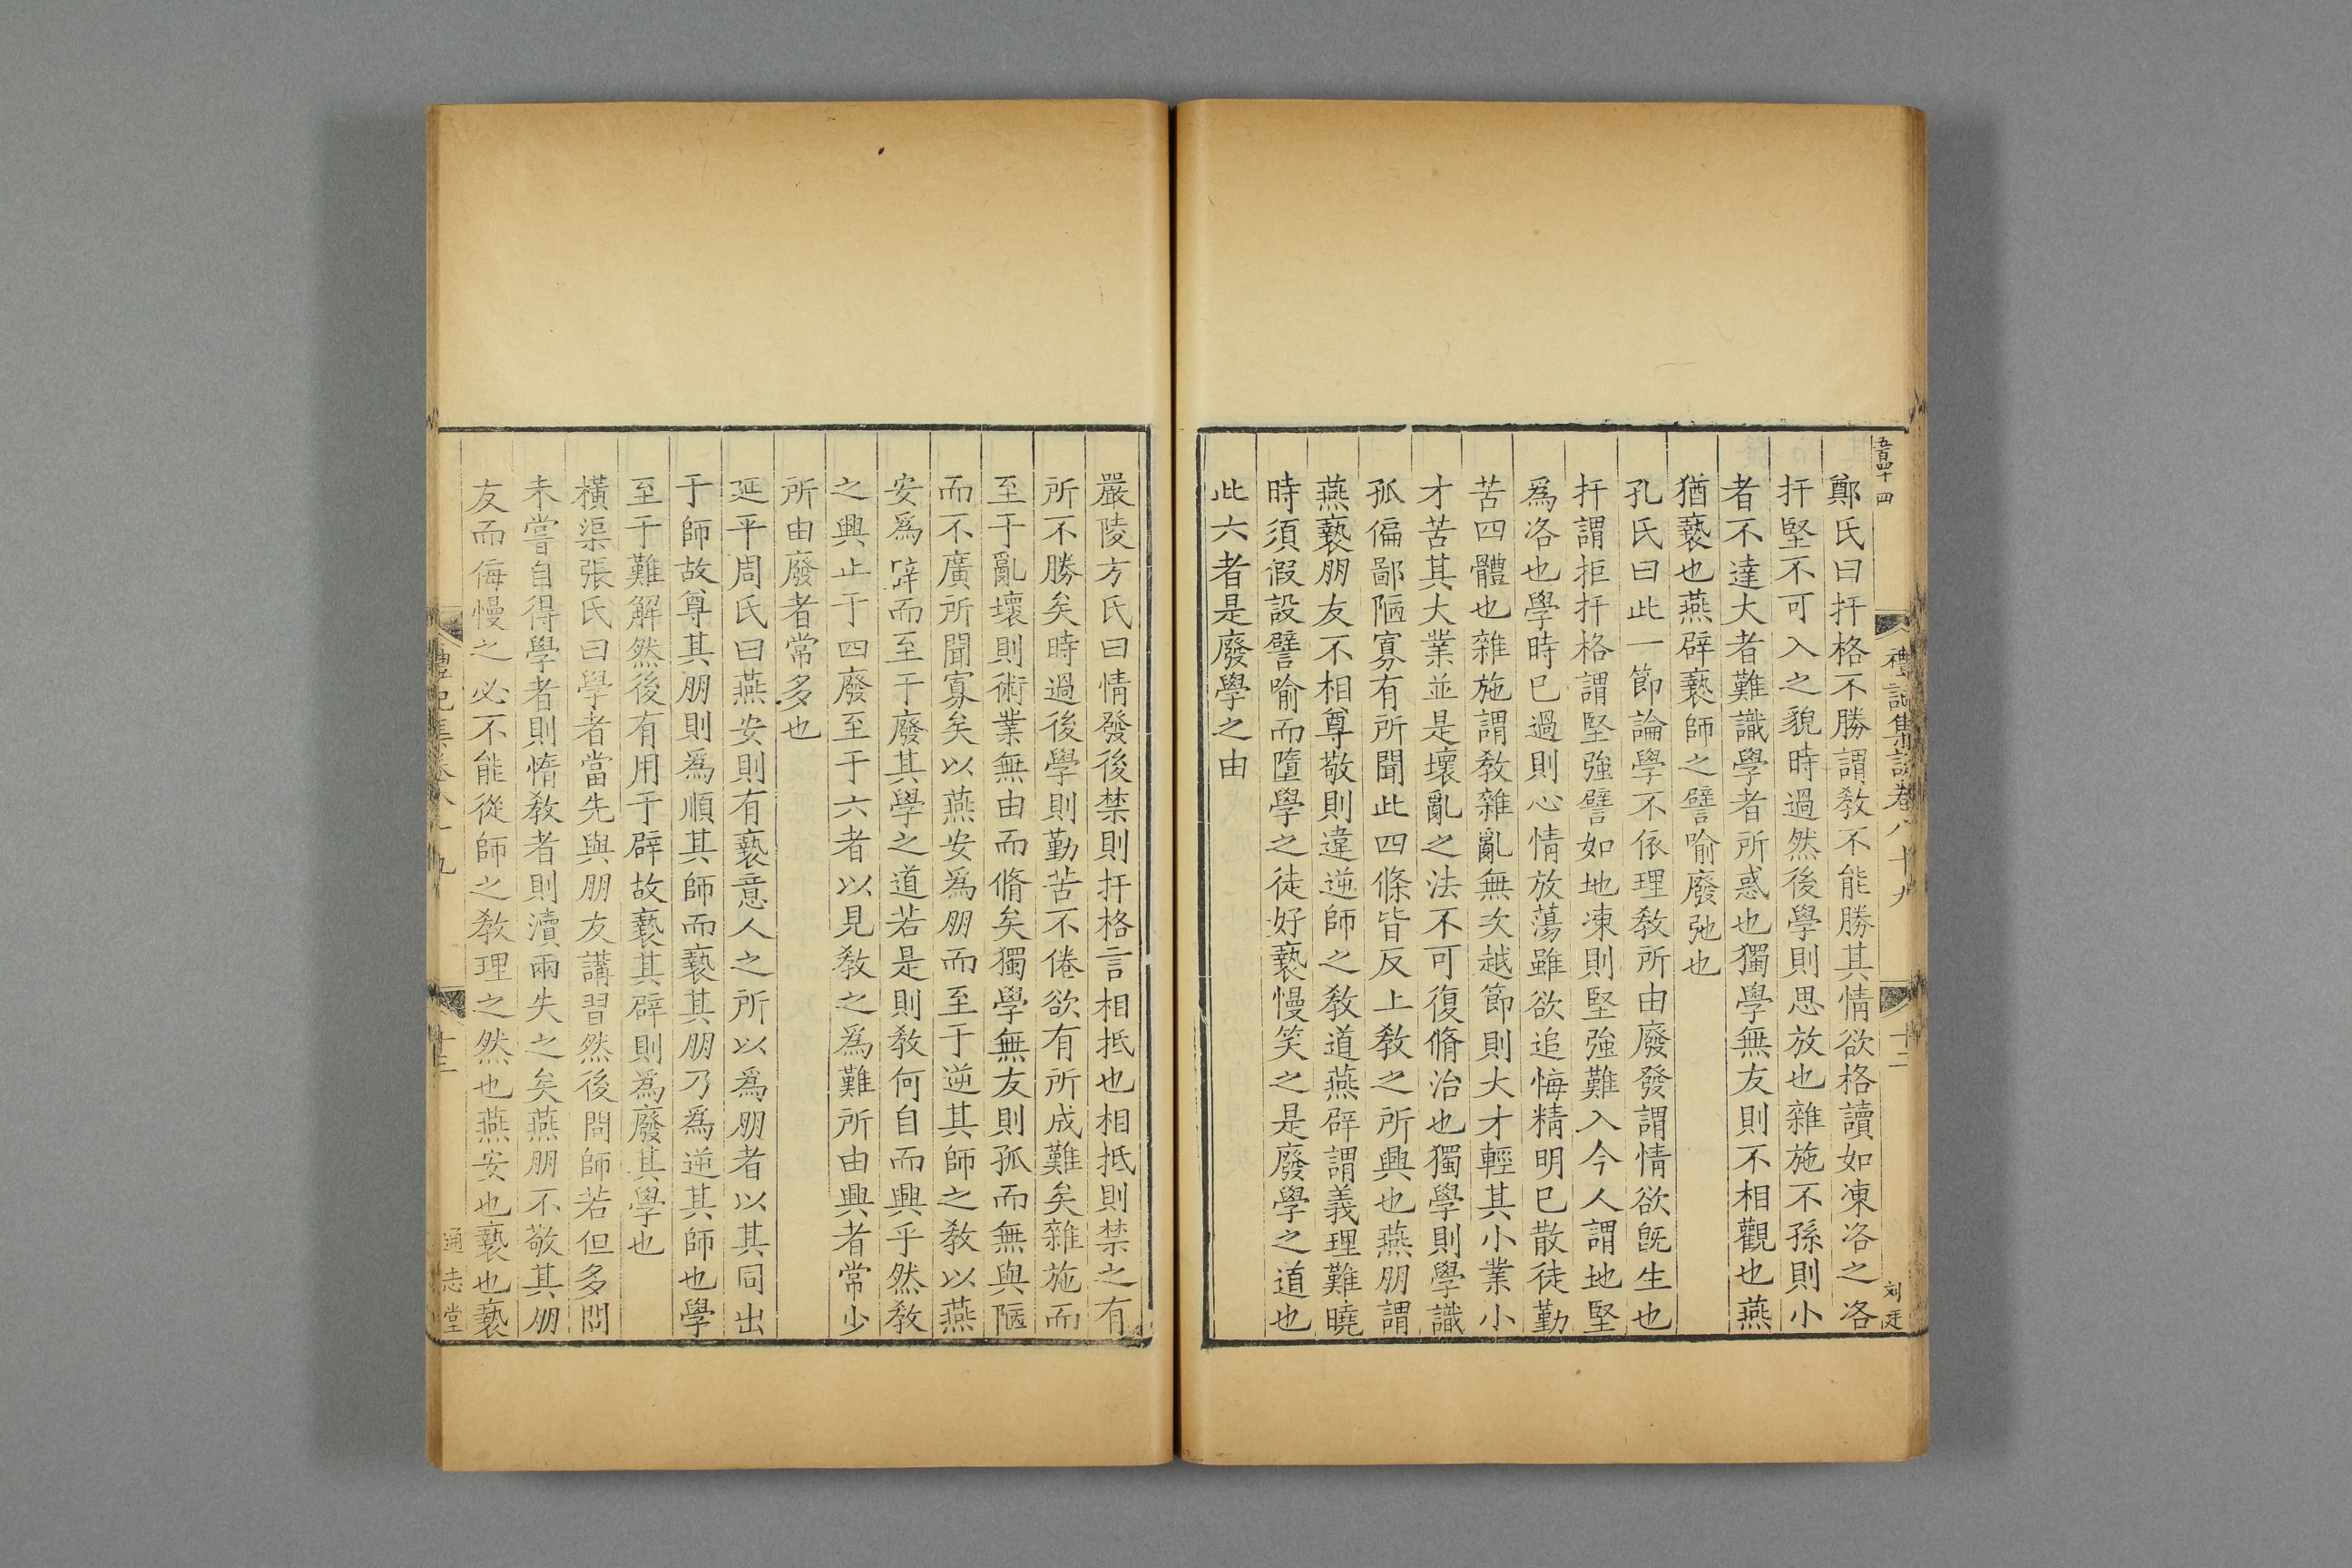 五百四十四
禮記集說卷八十九
十二
刘廷
鄭氏曰扞格不勝謂敎不能勝其情欲格讀如凍洛之洛
扞堅不可入之貌時過然後學則思放也雜施不孫則小
者不達大者難識學者所惑也獨學無友則不相觀也燕
猶䙝也燕辟䙝師之譬喻廢弛也
孔氏曰此一節論學不依理敎所由廢發謂情欲旣生也
扞謂拒扞格謂堅強譬如地凍則堅強難入今人謂地堅
爲洛也學時已過則心情放蕩雖欲追悔精明已散徒勤
苦四體也雜施謂敎雜亂無次越節則大才輕其小業小
才苦其大業並是壞亂之法不可復脩治也獨學則學識
孤偏鄙陋寡有所聞此四條皆反上敎之所興也燕朋謂
燕䙝朋友不相尊敬則違逆師之敎道燕辟謂義理難曉
時須假設譬喻而墮學之徒好䙝慢笑之是廢學之道也
此六者是廢學之由
嚴陵方氏曰情發後禁則扞格言相抵也相抵則禁之有
所不勝矣時過後學則勤苦不倦欲有所成難矣雜施而
至于亂壞則術業無由而脩矣獨學無友則孤而無與陋
而不廣所聞寡矣以燕安爲朋而至于逆其師之敎以燕
安爲辟而至于廢其學之道若是則敎何自而興乎然敎
之興止于四廢至于六者以見敎之爲難所由興者常少
所由廢者常多也
延平周氏曰燕安則有䙝意人之所以爲朋者以其同出
于師故尊其朋則爲順其師而䙝其朋乃爲逆其師也學
至于難解然後有用于辟故䙝其辟則爲廢其學也
橫渠張氏曰學者當先與朋友講習然後問師若但多問
未嘗自得學者則惰敎者則瀆兩失之矣燕朋不敬其朋
友而侮慢之必不能從師之敎理之然也燕安也䙝也䙝
禮記集卷八十九
十三
通志堂